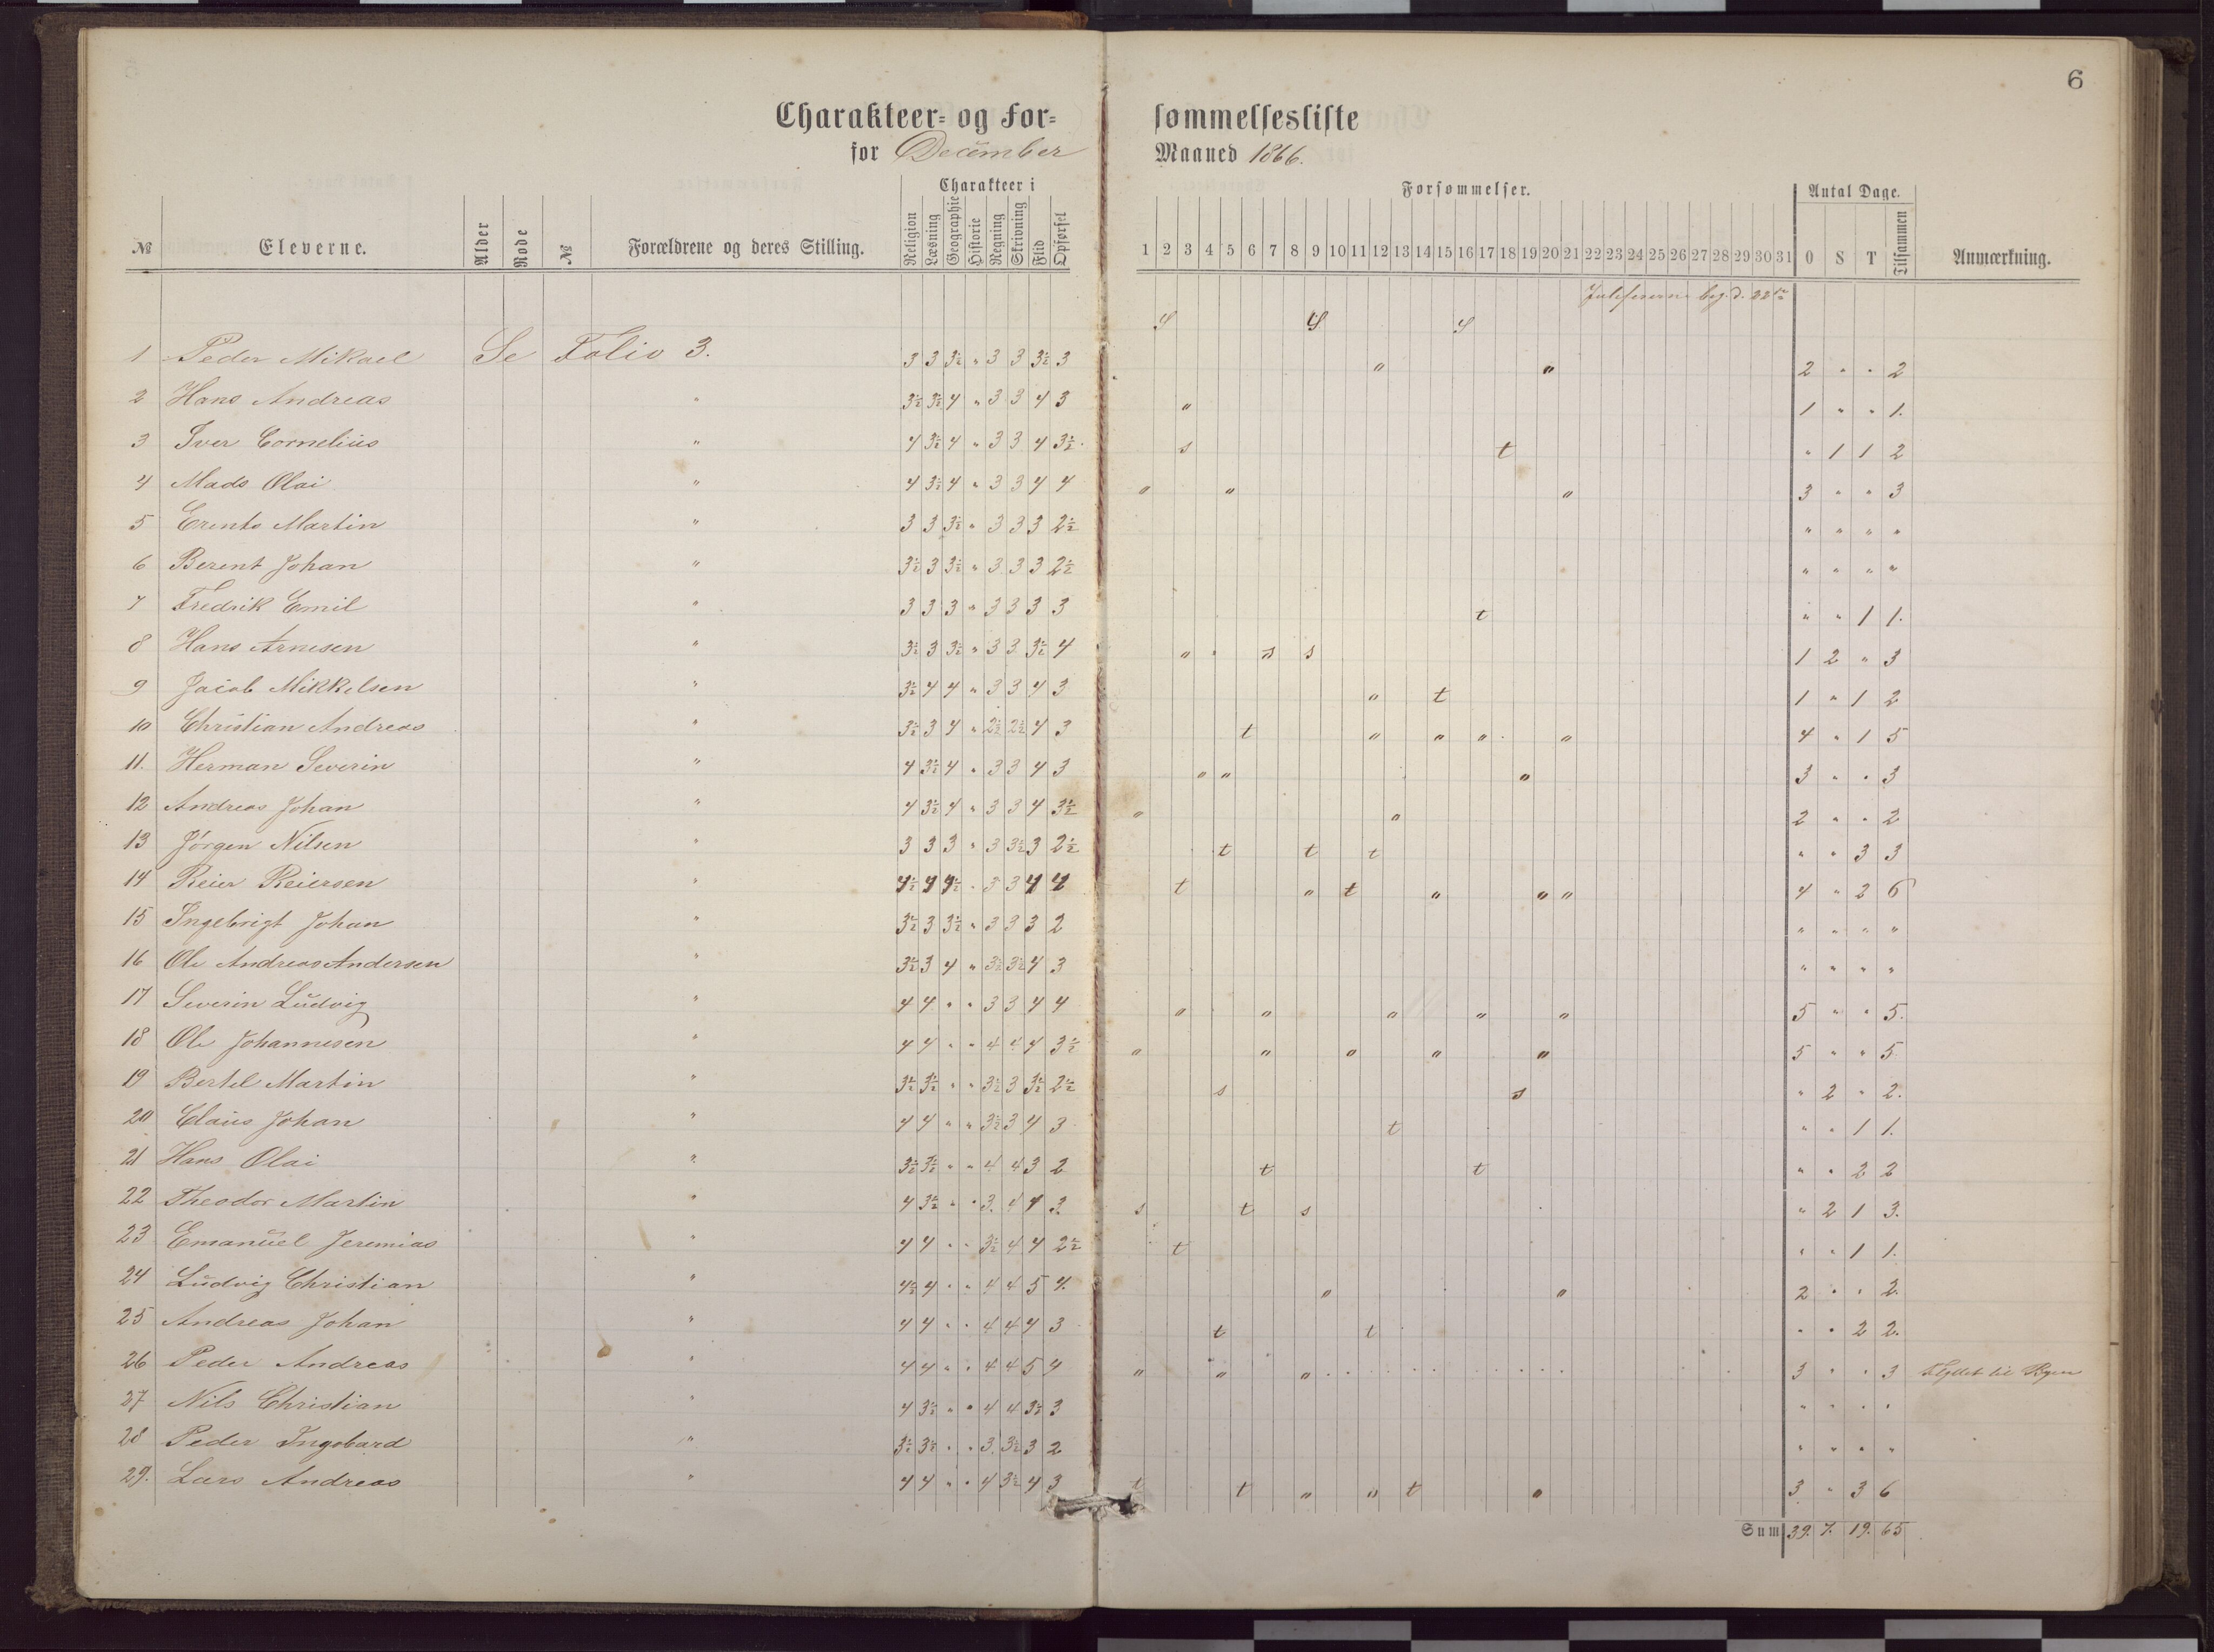 6
Charakteer= og For= sømmelsesliste
for December Maaned 1866.
Charakteer i Forsømmelser. Antal Dage.
№ Eleverne. Alder Rode № Forældrene og deres Stilling. Religion Læsning Geographie Historie Regning Skrivning Flid Opførsel 1 2 3 4 5 6 7 8 9 10 11 12 13 14 15 16 17 18 19 20 21 22 23 24 25 26 27 28 29 30 31 O S T Tilsammen Anmærkning.
Juleferierne beg. d. 22
S S S
1 Peder Mikael Se Folio 3. 3 3 3½ " 3 3 3½ 3 " " 2 " " 2
2 Hans Andreas " 3½ 3½ 4 " 3 3 4 3 " 1 " " 1.
3 Iver Cornelius " 4 3½ 4 " 3 3 4 3½ s t " 1 1 2
4 Mads Olai " 4 3½ 4 " 3 3 4 4 " " " 3 " " 3
5 Erents Martin " 3 3 3½ " 3 3 3 2½ " " " "
6 Berent Johan " 3½ 3 3½ " 3 3 3 2½ " " " "
7 Fredrik Emil " 3 3 3 " 3 3 3 3 t " " 1 1.
8 Hans Arnesen " 3½ 3 3½ " 3 3 3½ 4 " s s 1 2 " 3
9 Jacob Mikkelsen " 3½ 4 4 " 3 3 4 3 " t 1 " 1 2
10 Christian Andreas " 3½ 3 4 " 2½ 2½ 4 3 t " " " " 4 " 1 5
11. Herman Severin " 4 3½ 4 " 3 3 4 3 " " " 3 " " 3
12 Andreas Johan " 4 3½ 4 " 3 3 4 3½ " " 2 " " 2
13 Jørgen Nilsen " 3 3 3 " 3 3½ 3 2½ t t t " " 3 3
14 Reier Reiersen " 4½ 4 4½ " 3 3 4 4 t " t " " " 4 " 2 6
15 Ingebrigt Johan " 3½ 3 3½ " 3 3 3 2 " " " "
16 Ole Andreas Andersen " 3½ 3 4 " 3½ 3½ 4 3 " " " "
17 Severin Ludvig " 4 4 " " 3 3 4 4 " " " " " 5 " " 5.
18 Ole Johannesen " 4 4 " " 4 4 4 3½ " " " " " 5 " " 5
19 Bertel Martin " 3½ 3½ " " 3½ 3 3½ 2½ s s " 2 " 2.
20 Claus Johan " 4 4 " " 3½ 3 4 3 t " " 1 1.
21 Hans Olai " 3½ 3½ " " 4 4 3 2 t t " " 2 2
22 Theodor Martin " 4 3½ " " 3. 4 4 3 s t s " 2 1 3.
23 Emanuel Jeremias " 4 4 " " 3½ 4 4 2½ t " " 1 1.
24 Ludvig Christian " 4½ 4 " " 4 4 5 4. " " 2 " " 2.
25 Andreas Johan " 4 4 " " 4 4 4 3 t t " " 2 2.
26 Peder Andreas " 4 4 " " 4 4 5 4 " " " 3 " " 3 Flyttet til
27 Nils Christian " 4 3½ " " 4 4 3½ 3 " " " "
28 Peder Ingobard " 3½ 3½ " " 3. 3½ 3 2 " " " "
29. Lars Andreas " 4 4 " " 4 3½ 4 3 t t " " t " 3 " 3 6
Sum 39. 7. 19. 65